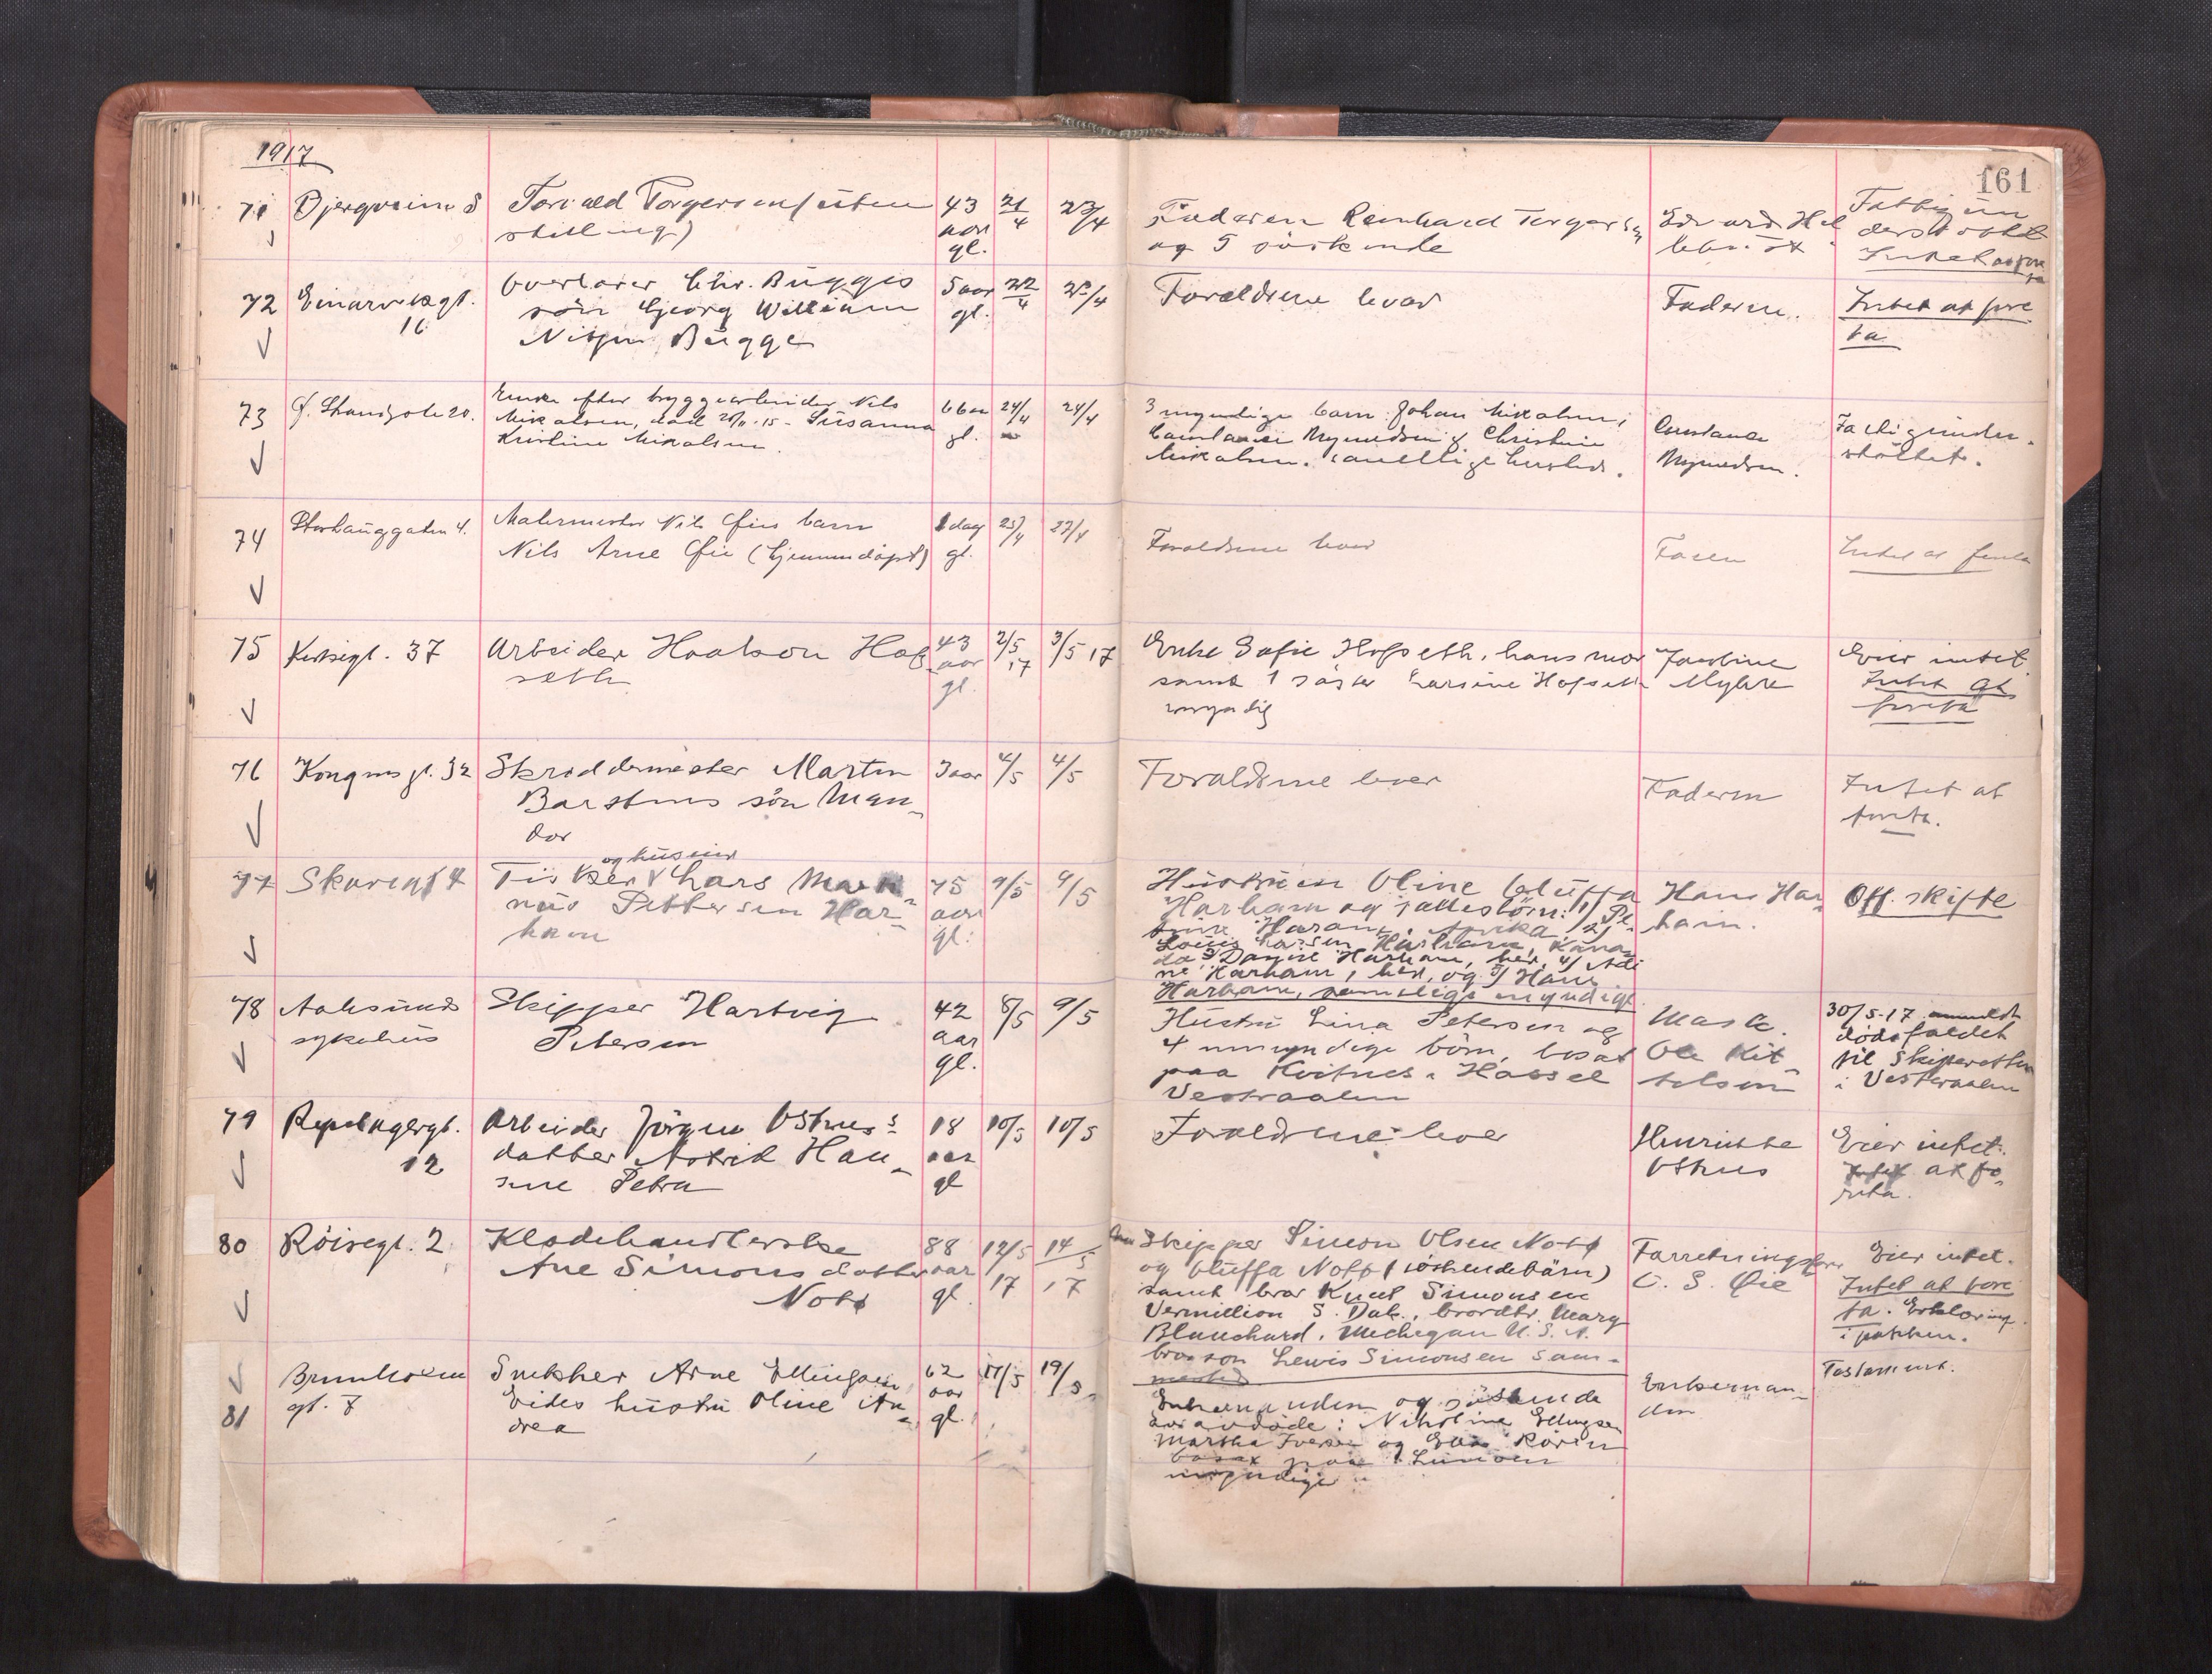 1917
161
71
Torvald Torgersen (uten
stilling)
43
aar
gl.
21/4
23/4
Faderen Reinhard Torgersen
og 5 söskende
Fattigun
derstöttet
Intet at fore
ta
72
Einarvikgt.
16
Overlærer Chr. Bugges
sön Georg William
Nitter Bugge
5 aar
gl.
22/4
25/4
Forældrene lever
Faderen.
Intet at fore
ta
73
Ø. Strandgate 20.
Enke efter bryggearbeider Nils
Mikalsen, död 20/11-15 - Susanna
Kristine Mikalsen.
66 aar
gl.
24/4
24/4
3 myndige barn Johan Mikalsen,
Christine
Mikalsen.
Fattigunder-
stöttet.
74
Storhauggaten 4.
Malermester Nils Øies barn
Nils Arne Øie (hjemmedöpt)
1 dag
gl.
25/4
27/4
Forældrene lever
Faren
Intet at foreta
75
Kirkegt. 37
Arbeider Haakon Hof
seth
43
aar
gl.
2/5
17
3/5 17
Enke Sofie Hofseth, hans mor
samt 1 söster Larsine Hofseth
myndig
Eier intet
Intet at
foreta
76
Kongensgt. 32
Skræddermester Martin
Barstens sön
3 aar
4/5
4/5
Forældrene lever
Faderen
Intet at
foreta.
77
og huseier
Fisker Lars Mark
nus Pettersen Har-
ham
75
aar
gl.
9/5
9/5
Hustruen Oline Oluffa
Harham og fællesbörn: 1/ Pe
2/
Harham, Kana
da 3/ Harham, her, 4/
Harham, her, og 5/ Hans
Harham, samtlige myndige.
Hans Har-
ham.
Off. skifte
78
Aalesunds
sykehus
Skipper Hartvig
Petersen
42
aar
gl.
8/5
9/5
Hustru Lina Petersen og
4 umyndige börn, bosat
paa Kvitnes i Hassel
Vesteraalen
Mask.
Ole Kit-
telsen
30/5-17 anmeldt
dödsfaldet
til Skifteretten
i Vesteraalen
79
Repslagergt.
12
Arbeider Jörgen Osthus's
datter Astrid Han-
sine Petra
18
aar
gl
10/5
10/5
Forældrene lever
Henriette
Osthus
Eier intet.
Intet at fo-
reta.
80
Röisegt. 2
Klædehandlerske
Ane Simonsdatter
88
aar
gl.
12/5
17
14/5
17
Skipper Simon Olsen
og Oluffa (söskendebarn)
samt bror Knut Simonsen
Vermillion S. Dak., brordtr. Mary
Blanchard, Michegan U.S.A.
brorson Lewis Simonsen sam-
mested
Forretningsförer
O. S. Øie
Eier intet.
Intet at fore
ta. Erklæring
i pakken.
81
Brunholmen
gt. 7
Snekker Arne Ellingsen
Eides hustru Oline An-
drea
62
aar
gl.
17/5
19/5
Enkemanden og söskende
av avdöde: Nikoline Ellingsen
Martha Iversen og
bosat paa
myndige
Enkeman-
den
Testament.